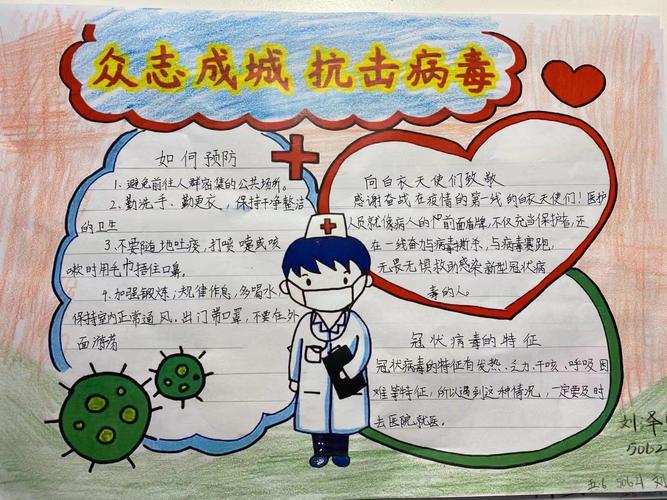 众志成城 抗击病毒
如何预防
1、避免前往人群密集的公共场所。
2、勤洗手、勤更衣，保持干净整洁
的卫生
3、不要随地吐痰，打喷嚏或咳
嗽时用毛巾捂住口鼻。
4、加强锻炼；规律作息，多喝水，
保持室内正常通风。出门带口罩，不要在外
面游荡
向白衣天使们致敬
感谢奋战在疫情的第一线的白衣天使们！医护
人员就像病人的前面盾牌，不仅充当保护者，还
在一线奋力与病毒撕杀，与病毒赛跑，
无畏无惧救助感染新型冠状病
毒的人。
冠状病毒的特征
冠状病毒的特征有发热、乏力、干咳、呼吸困
难等特征，所以遇到这种情况，一定要及时
去医院就医。
刘泽
5062
五.6